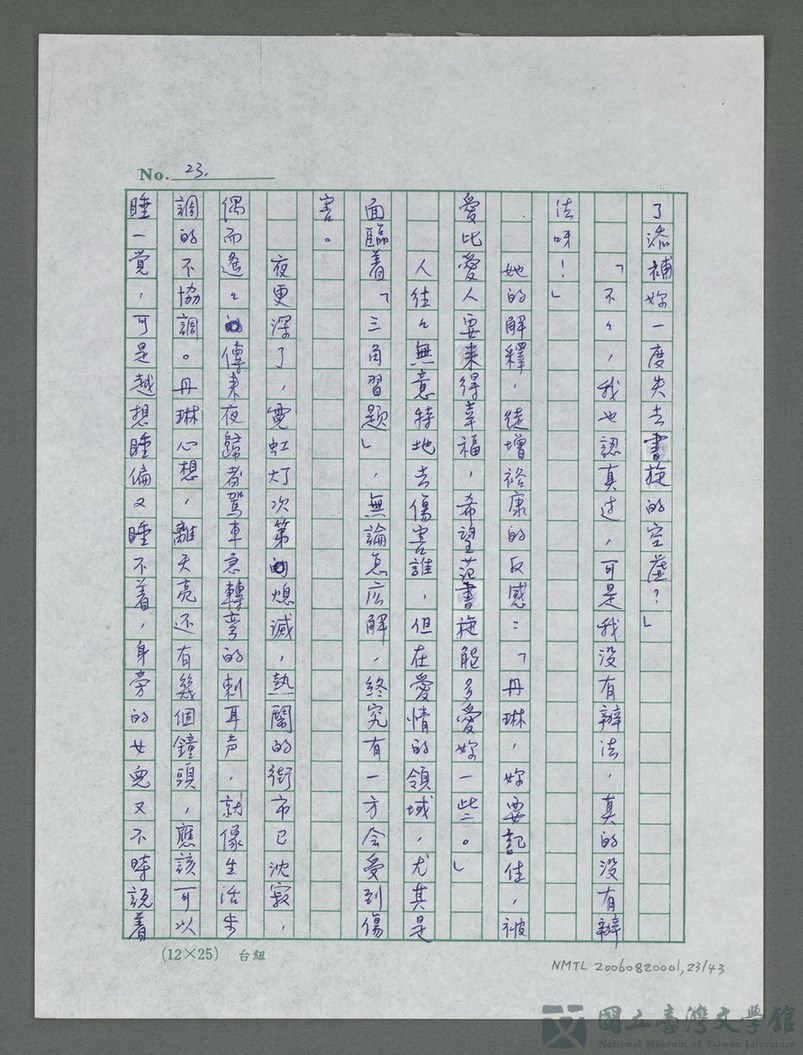 No. 23.
了添補妳一度失去書旋的空虛？」
「不々，我也認真过，可是我没有辦法，真的没有辦
法呀！」
她的解釋，徒增裕康的反感：「丹琳，妳要記住，被
愛比愛人要来得幸福，希望范書旋能多愛妳一些。」
人往々無意特地去傷害誰，但在愛情的領域，尤其是
面臨着「三角習題」，無論怎庅解，終究有一方会受到傷
害。
夜更深了，霓虹灯次第的熄滅，熱鬧的街市已沈寂，
偶而遙々傳来夜歸者駕車急轉弯的刺耳声，就像生活步
調的不協調。丹琳心想，離天亮还有幾個鐘頭，應該可以
睡一覚，可是越想睡偏又睡不着，身旁的女兒又不時説着
(12×25) 台紐
NMTL 20060820001, 23/43
國立臺灣文學館
National Museum of Taiwan Literature